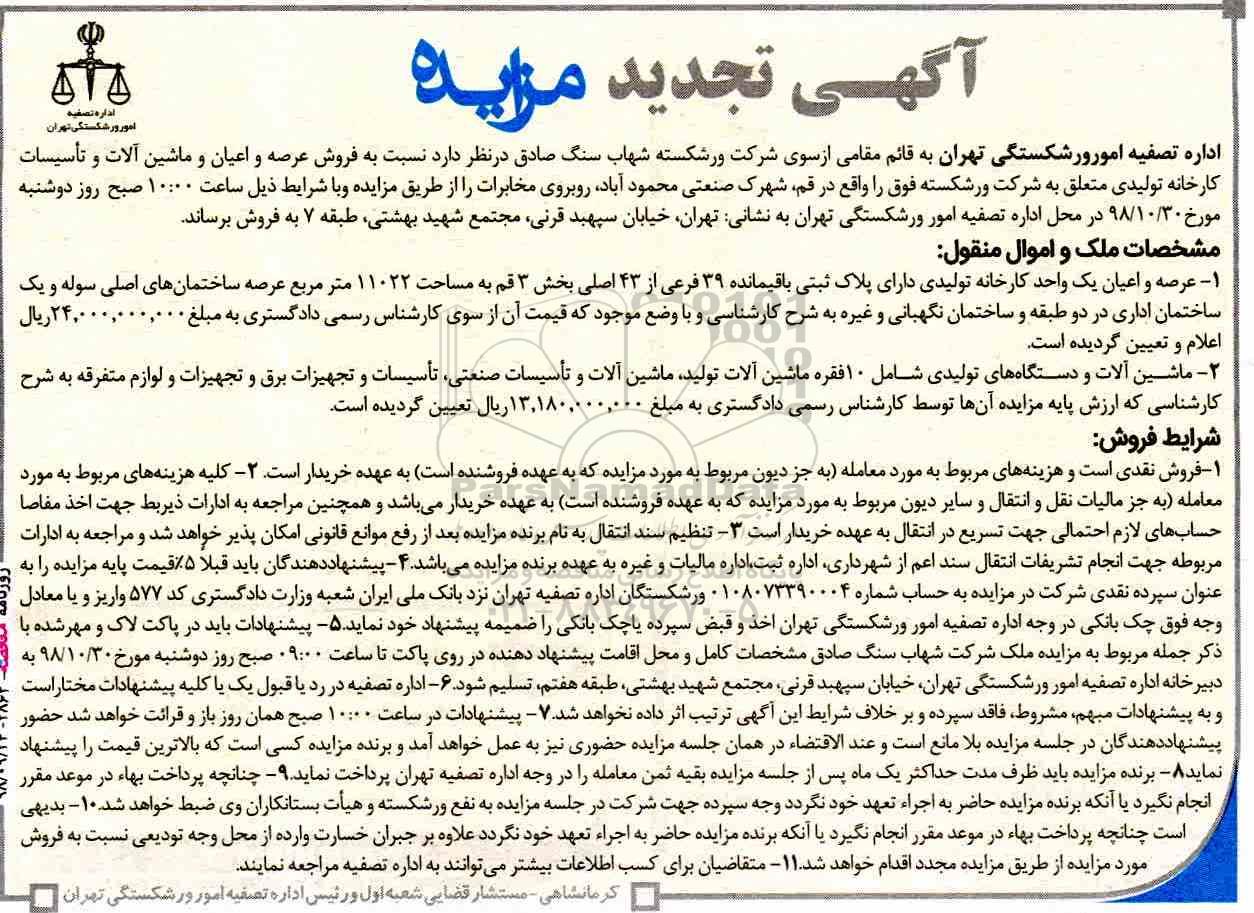 آگهی تجدید مزایده
اداره تصفیه
امور ورشکستگی تهران
اداره تصفیه امورورشکستگی تهران به قائم مقامی ازسوی شرکت ورشکسته شهاب سنگ صادق درنظر دارد نسبت به فروش عرصه و اعیان و ماشین آلات و تأسیسات
کارخانه تولیدی متعلق به شرکت ورشکسته فوق را واقع در قم، شهرک صنعتی محمود آباد، روبروی مخابرات را از طریق مزایده وبا شرایط ذیل ساعت ۱۰:۰۰ صبح روز دوشنبه
مورخ ۹۸/۱۰/۳۰ در محل اداره تصفیه امور ورشکستگی تهران به نشانی: تهران، خیابان سپهبد قرنی، مجتمع شهید بهشتی، طبقه ۷ به فروش برساند.
مشخصات ملک و اموال منقول:
۱- عرصه و اعیان یک واحد کارخانه تولیدی دارای پلاک ثبتی باقیمانده ۳۹ فرعی از ۴۳ اصلی بخش ۳ قم به مساحت ۱۱۰۲۲ متر مربع عرصه ساختمان‌های اصلی سوله و یک
ساختمان اداری در دو طبقه و ساختمان نگهبانی و غیره به شرح کارشناسی و با وضع موجود که قیمت آن از سوی کارشناس رسمی دادگستری به مبلغ ۲۴,۰۰۰,۰۰۰,۰۰۰ریال
اعلام و تعیین گردیده است.
۲- ماشین آلات و دستگاه‌های تولیدی شامل ۱۰فقره ماشین آلات تولید، ماشین آلات و تأسیسات صنعتی، تأسیسات و تجهیزات برق و تجهیزات و لوازم متفرقه به شرح
کارشناسی که ارزش پایه مزایده آن‌ها توسط کارشناس رسمی دادگستری به مبلغ ۱۳,۱۸۰,۰۰۰,۰۰۰ریال تعیین گردیده است.
شرایط فروش:
۱-فروش نقدی است و هزینه‌های مربوط به مورد معامله (به جز دیون مربوط به مورد مزایده که به عهده فروشنده است) به عهده خریدار است. ۲- کلیه هزینه‌های مربوط به مورد
معامله (به جز مالیات نقل و انتقال و سایر دیون مربوط به مورد مزایده که به عهده فروشنده است) به عهده خریدار می‌باشد و همچنین مراجعه به ادارات ذیربط جهت اخذ مفاصا
حساب‌های لازم احتمالی جهت تسریع در انتقال به عهده خریدار است ۳- تنظیم سند انتقال به نام برنده مزایده بعد از رفع موانع قانونی امکان پذیر خواهد شد و مراجعه به ادارات
مربوطه جهت انجام تشریفات انتقال سند اعم از شهرداری، اداره ثبت،اداره مالیات و غیره به عهده برنده مزایده می‌باشد.۴-پیشنهاددهندگان باید قبلا ۵٪قیمت پایه مزایده را به
عنوان سپرده نقدی شرکت در مزایده به حساب شماره ۰۱۰۸۰۷۳۳۹۰۰۰۴ ورشکستگان اداره تصفیه تهران نزد بانک ملی ایران شعبه وزارت دادگستری کد ۵۷۷ واریز و یا معادل
وجه فوق چک بانکی در وجه اداره تصفیه امور ورشکستگی تهران اخذ و قبض سپرده یاچک بانکی را ضمیمه پیشنهاد خود نماید.۵- پیشنهادات باید در پاکت لاک و مهرشده با
ذکر جمله مربوط به مزایده ملک شرکت شهاب سنگ صادق مشخصات کامل و محل اقامت پیشنهاد دهنده در روی پاکت تا ساعت ۰۹:۰۰ صبح روز دوشنبه مورخ ۹۸/۱۰/۳۰ به
دبیرخانه اداره تصفیه امور ورشکستگی تهران، خیابان سپهبد قرنی، مجتمع شهید بهشتی، طبقه هفتم، تسلیم شود.۶- اداره تصفیه در رد یا قبول یک یا کلیه پیشنهادات مختاراست
و به پیشنهادات مبهم، مشروط، فاقد سپرده و بر خلاف شرایط این آگهی ترتیب اثر داده نخواهد شد.۷- پیشنهادات در ساعت ۱۰:۰۰ صبح همان روز باز و قرائت خواهد شد حضور
پیشنهاددهندگان در جلسه مزایده بلا مانع است و عند الاقتضاء در همان جلسه مزایده حضوری نیز به عمل خواهد آمد و برنده مزایده کسی است که بالاترین قیمت را پیشنهاد
نماید۸- برنده مزایده باید ظرف مدت حداکثر یک ماه پس از جلسه مزایده بقیه ثمن معامله را در وجه اداره تصفیه تهران پرداخت نماید.۹- چنانچه پرداخت بهاء در موعد مقرر
انجام نگیرد یا آنکه برنده مزایده حاضر به اجراء تعهد خود نگردد وجه سپرده جهت شرکت در جلسه مزایده به نفع ورشکسته و هیأت بستانکاران وی ضبط خواهد شد.۱۰- بدیهی
است چنانچه پرداخت بهاء در موعد مقرر انجام نگیرد یا آنکه برنده مزایده حاضر به اجراء تعهد خود نگردد علاوه بر جبران خسارت وارده از محل وجه تودیعی نسبت به فروش
مورد مزایده از طریق مزایده مجدد اقدام خواهد شد.۱۱- متقاضیان برای کسب اطلاعات بیشتر می‌توانند به اداره تصفیه مراجعه نمایند.
کرمانشاهی -مستشار قضایی شعبه اول و رئیس اداره تصفیه امور ورشکستگی تهران
ParsNamadData
پایگاه اطلاع رسانی مناقصه و مزایده
۰۲۱-۸۸۳۴۹۶۷۰-۵